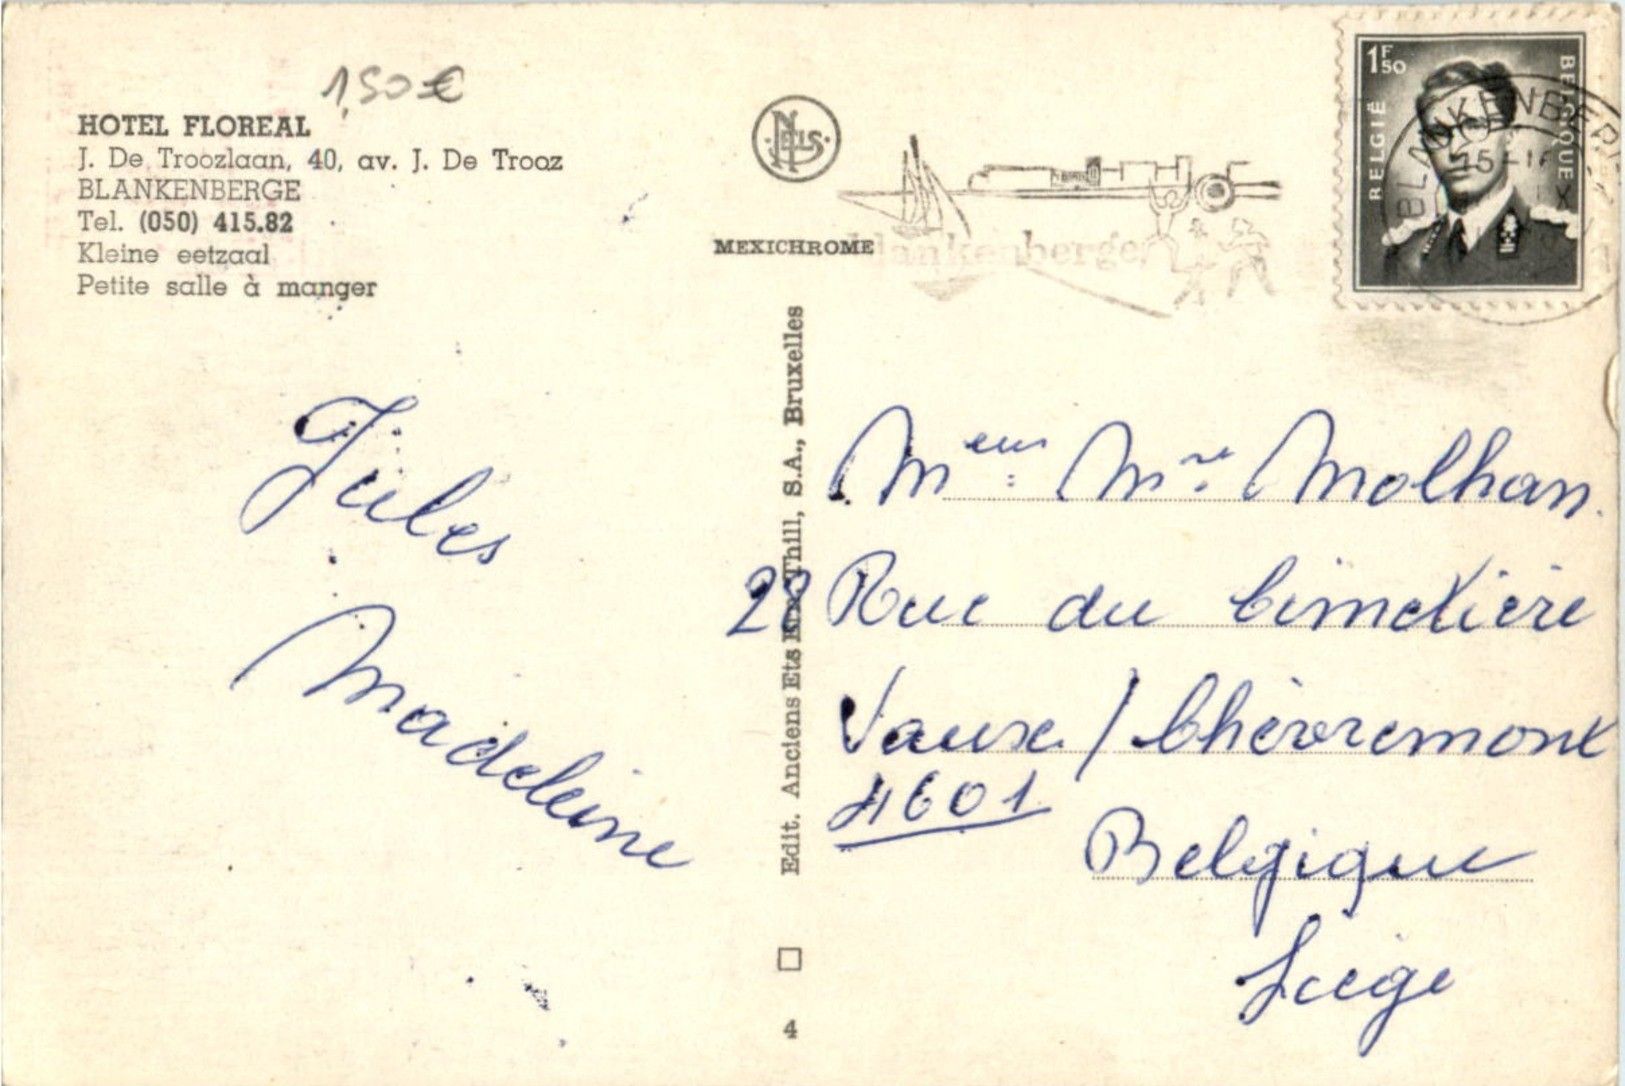 1,50 €
HOTEL FLOREAL
J. De Troozlaan, 40, av. J. De Trooz
BLANKENBERGE
Tel. (050) 415.82
Kleine eetzaal
Petite salle à manger
Jules
Madeleine
NELS
MEXICHROME
Edit. Anciens Ets Thill, S.A., Bruxelles
4
blankenberge
1F50
BELGIË
BELGIQUE
BLANKENBERGE
Meur Mme Molhan.
22 Rue du Cimetière
Vaux / Chèvremont
4601
Belgique
Liège